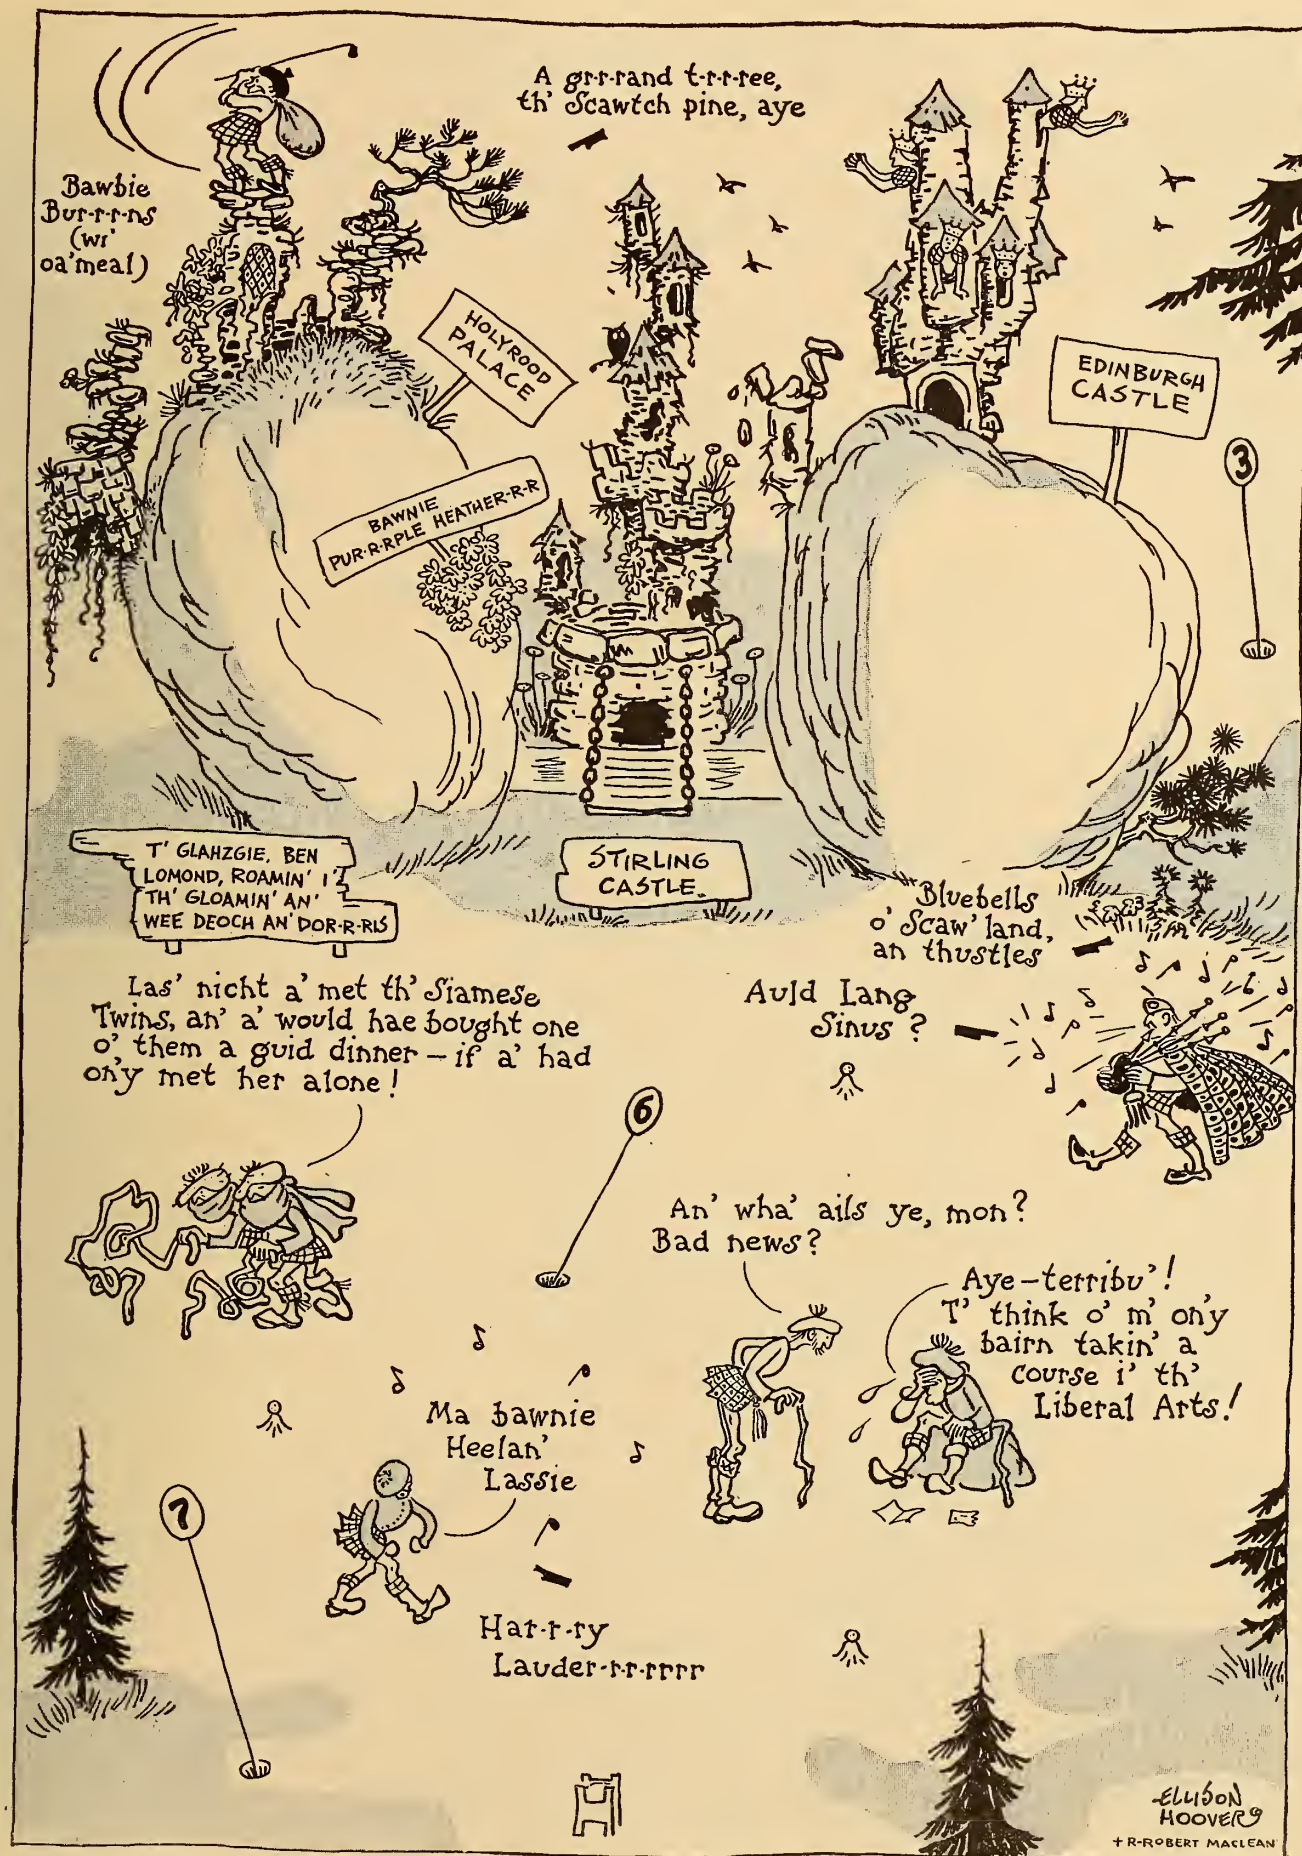 A gr-r-rand t-r-r-ree,
th' Scawtch pine, aye
Bawbie
Bur-r-r-ns
(wi'
oa'meal)
HOLYROOD
PALACE
EDINBURGH
CASTLE
3
BAWNIE
PUR-R-RPLE HEATHER-R-R
T' GLAHZGIE, BEN
LOMOND, ROAMIN' I'
TH' GLOAMIN' AN'
WEE DEOCH AN' DOR-R-RIS
STIRLING
CASTLE.
Bluebells
o' Scaw'land,
an thustles
Las' nicht a' met th' Siamese
Twins, an' a' would hae bought one
o' them a guid dinner – if a' had
on'y met her alone!
Auld Lang
Sinus?
6
An' wha' ails ye, mon?
Bad news?
Aye – terribu'!
T' think o' m' on'y
bairn takin' a
course i' th'
Liberal Arts!
Ma bawnie
Heelan'
Lassie
7
Har-r-ry
Lauder-r-r-rrrr
ELLISON
HOOVER
+ R-ROBERT MACLEAN